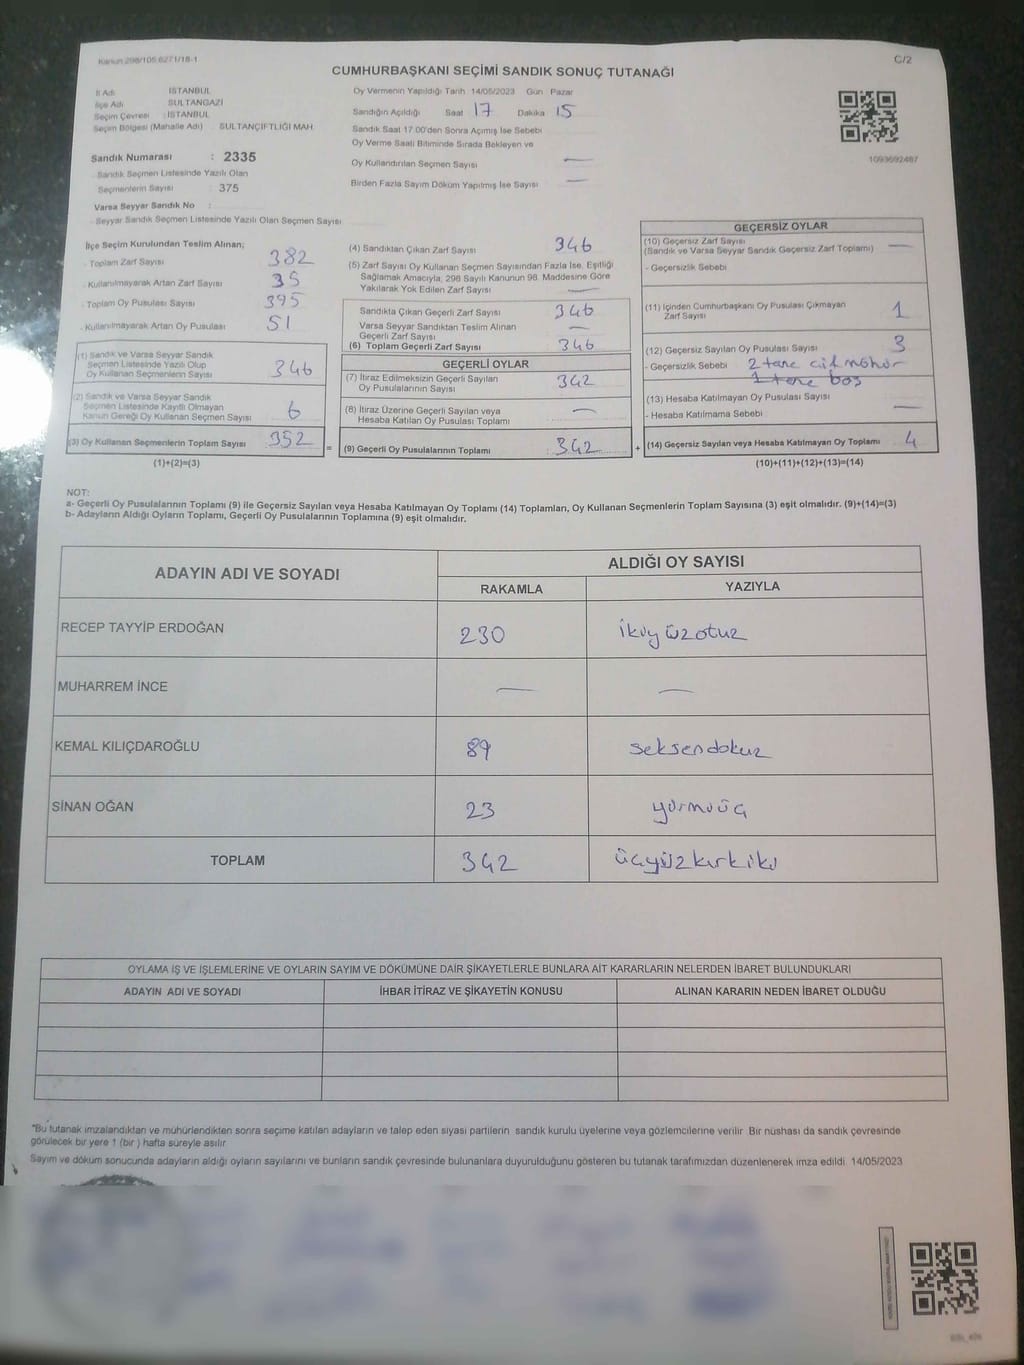 Kanun 298/105,6271/18-1
C/2
CUMHURBAŞKANI SEÇİMİ SANDIK SONUÇ TUTANAĞI
İl Adı İSTANBUL
İlçe Adı SULTANGAZİ
Seçim Çevresi : İSTANBUL
Seçim Bölgesi (Mahalle Adı) : SULTANÇİFTLİĞİ MAH.
Sandık Numarası : 2335
Sandık Seçmen Listesinde Yazılı Olan
Seçmenlerin Sayısı : 375
Varsa Seyyar Sandık No :
- Seyyar Sandık Seçmen Listesinde Yazılı Olan Seçmen Sayısı
Oy Vermenin Yapıldığı Tarih 14/05/2023 Gün Pazar
Sandığın Açıldığı Saat 17 Dakika 15
Sandık Saat 17.00'den Sonra Açımış İse Sebebi
Oy Verme Saati Bitiminde Sırada Bekleyen ve
Oy Kullandırılan Seçmen Sayısı —
Birden Fazla Sayım Döküm Yapılmış İse Sayısı —
1093692487
İlçe Seçim Kurulundan Teslim Alınan;
- Toplam Zarf Sayısı 382
- Kullanılmayarak Artan Zarf Sayısı 35
- Toplam Oy Pusulası Sayısı 395
- Kullanılmayarak Artan Oy Pusulası 51
(1) Sandık ve Varsa Seyyar Sandık
Seçmen Listesinde Yazılı Olup
Oy Kullanan Seçmenlerin Sayısı 346
(2) Sandık ve Varsa Seyyar Sandık
Seçmen Listesinde Kayıtlı Olmayan
Kanun Gereği Oy Kullanan Seçmen Sayısı 6
(3) Oy Kullanan Seçmenlerin Toplam Sayısı 352
(1)+(2)=(3)
(4) Sandıktan Çıkan Zarf Sayısı 346
(5) Zarf Sayısı Oy Kullanan Seçmen Sayısından Fazla İse, Eşitliği
Sağlamak Amacıyla, 298 Sayılı Kanunun 98. Maddesine Göre
Yakılarak Yok Edilen Zarf Sayısı —
Sandıkta Çıkan Geçerli Zarf Sayısı 346
Varsa Seyyar Sandıktan Teslim Alınan
Geçerli Zarf Sayısı —
(6) Toplam Geçerli Zarf Sayısı 346
GEÇERLİ OYLAR
(7) İtiraz Edilmeksizin Geçerli Sayılan
Oy Pusulasının Sayısı 342
(8) İtiraz Üzerine Geçerli Sayılan veya
Hesaba Katılan Oy Pusulası Toplamı —
= (9) Geçerli Oy Pusulalarının Toplamı : 342 +
GEÇERSİZ OYLAR
(10) Geçersiz Zarf Sayısı —
(Sandık ve Varsa Seyyar Sandık Geçersiz Zarf Toplamı)
- Geçersizlik Sebebi
(11) İçinden Cumhurbaşkanı Oy Pusulası Çıkmayan
Zarf Sayısı 1
(12) Geçersiz Sayılan Oy Pusulası Sayısı 3
- Geçersizlik Sebebi 2 tane çift mühür
1 tane boş
(13) Hesaba Katılmayan Oy Pusulası Sayısı —
- Hesaba Katılmama Sebebi
(14) Geçersiz Sayılan veya Hesaba Katılmayan Oy Toplamı 4
(10)+(11)+(12)+(13)=(14)
NOT:
a- Geçerli Oy Pusulalarının Toplamı (9) ile Geçersiz Sayılan veya Hesaba Katılmayan Oy Toplamı (14) Toplamları, Oy Kullanan Seçmenlerin Toplam Sayısına (3) eşit olmalıdır. (9)+(14)=(3)
b- Adayların Aldığı Oyların Toplamı, Geçerli Oy Pusulalarının Toplamına (9) eşit olmalıdır.
ADAYIN ADI VE SOYADI ALDIĞI OY SAYISI
RAKAMLA YAZIYLA
RECEP TAYYİP ERDOĞAN 230 ikiyüzotuz
MUHARREM İNCE — —
KEMAL KILIÇDAROĞLU 89 seksendokuz
SİNAN OĞAN 23 yirmiüç
TOPLAM 342 üçyüzkırkiki
OYLAMA İŞ VE İŞLEMLERİNE VE OYLARIN SAYIM VE DÖKÜMÜNE DAİR ŞİKAYETLERLE BUNLARA AİT KARARLARIN NELERDEN İBARET BULUNDUKLARI
ADAYIN ADI VE SOYADI İHBAR İTİRAZ VE ŞİKAYETİN KONUSU ALINAN KARARIN NEDEN İBARET OLDUĞU
*Bu tutanak imzalandıktan ve mühürlendikten sonra seçime katılan adayların ve talep eden siyasi partilerin sandık kurulu üyelerine veya gözlemcilerine verilir. Bir nüshası da sandık çevresinde
görülecek bir yere 1 (bir ) hafta süreyle asılır.
Sayım ve döküm sonucunda adayların aldığı oyların sayılarını ve bunların sandık çevresinde bulunanlara duyurulduğunu gösteren bu tutanak tarafımızdan düzenlenerek imza edildi 14/05/2023